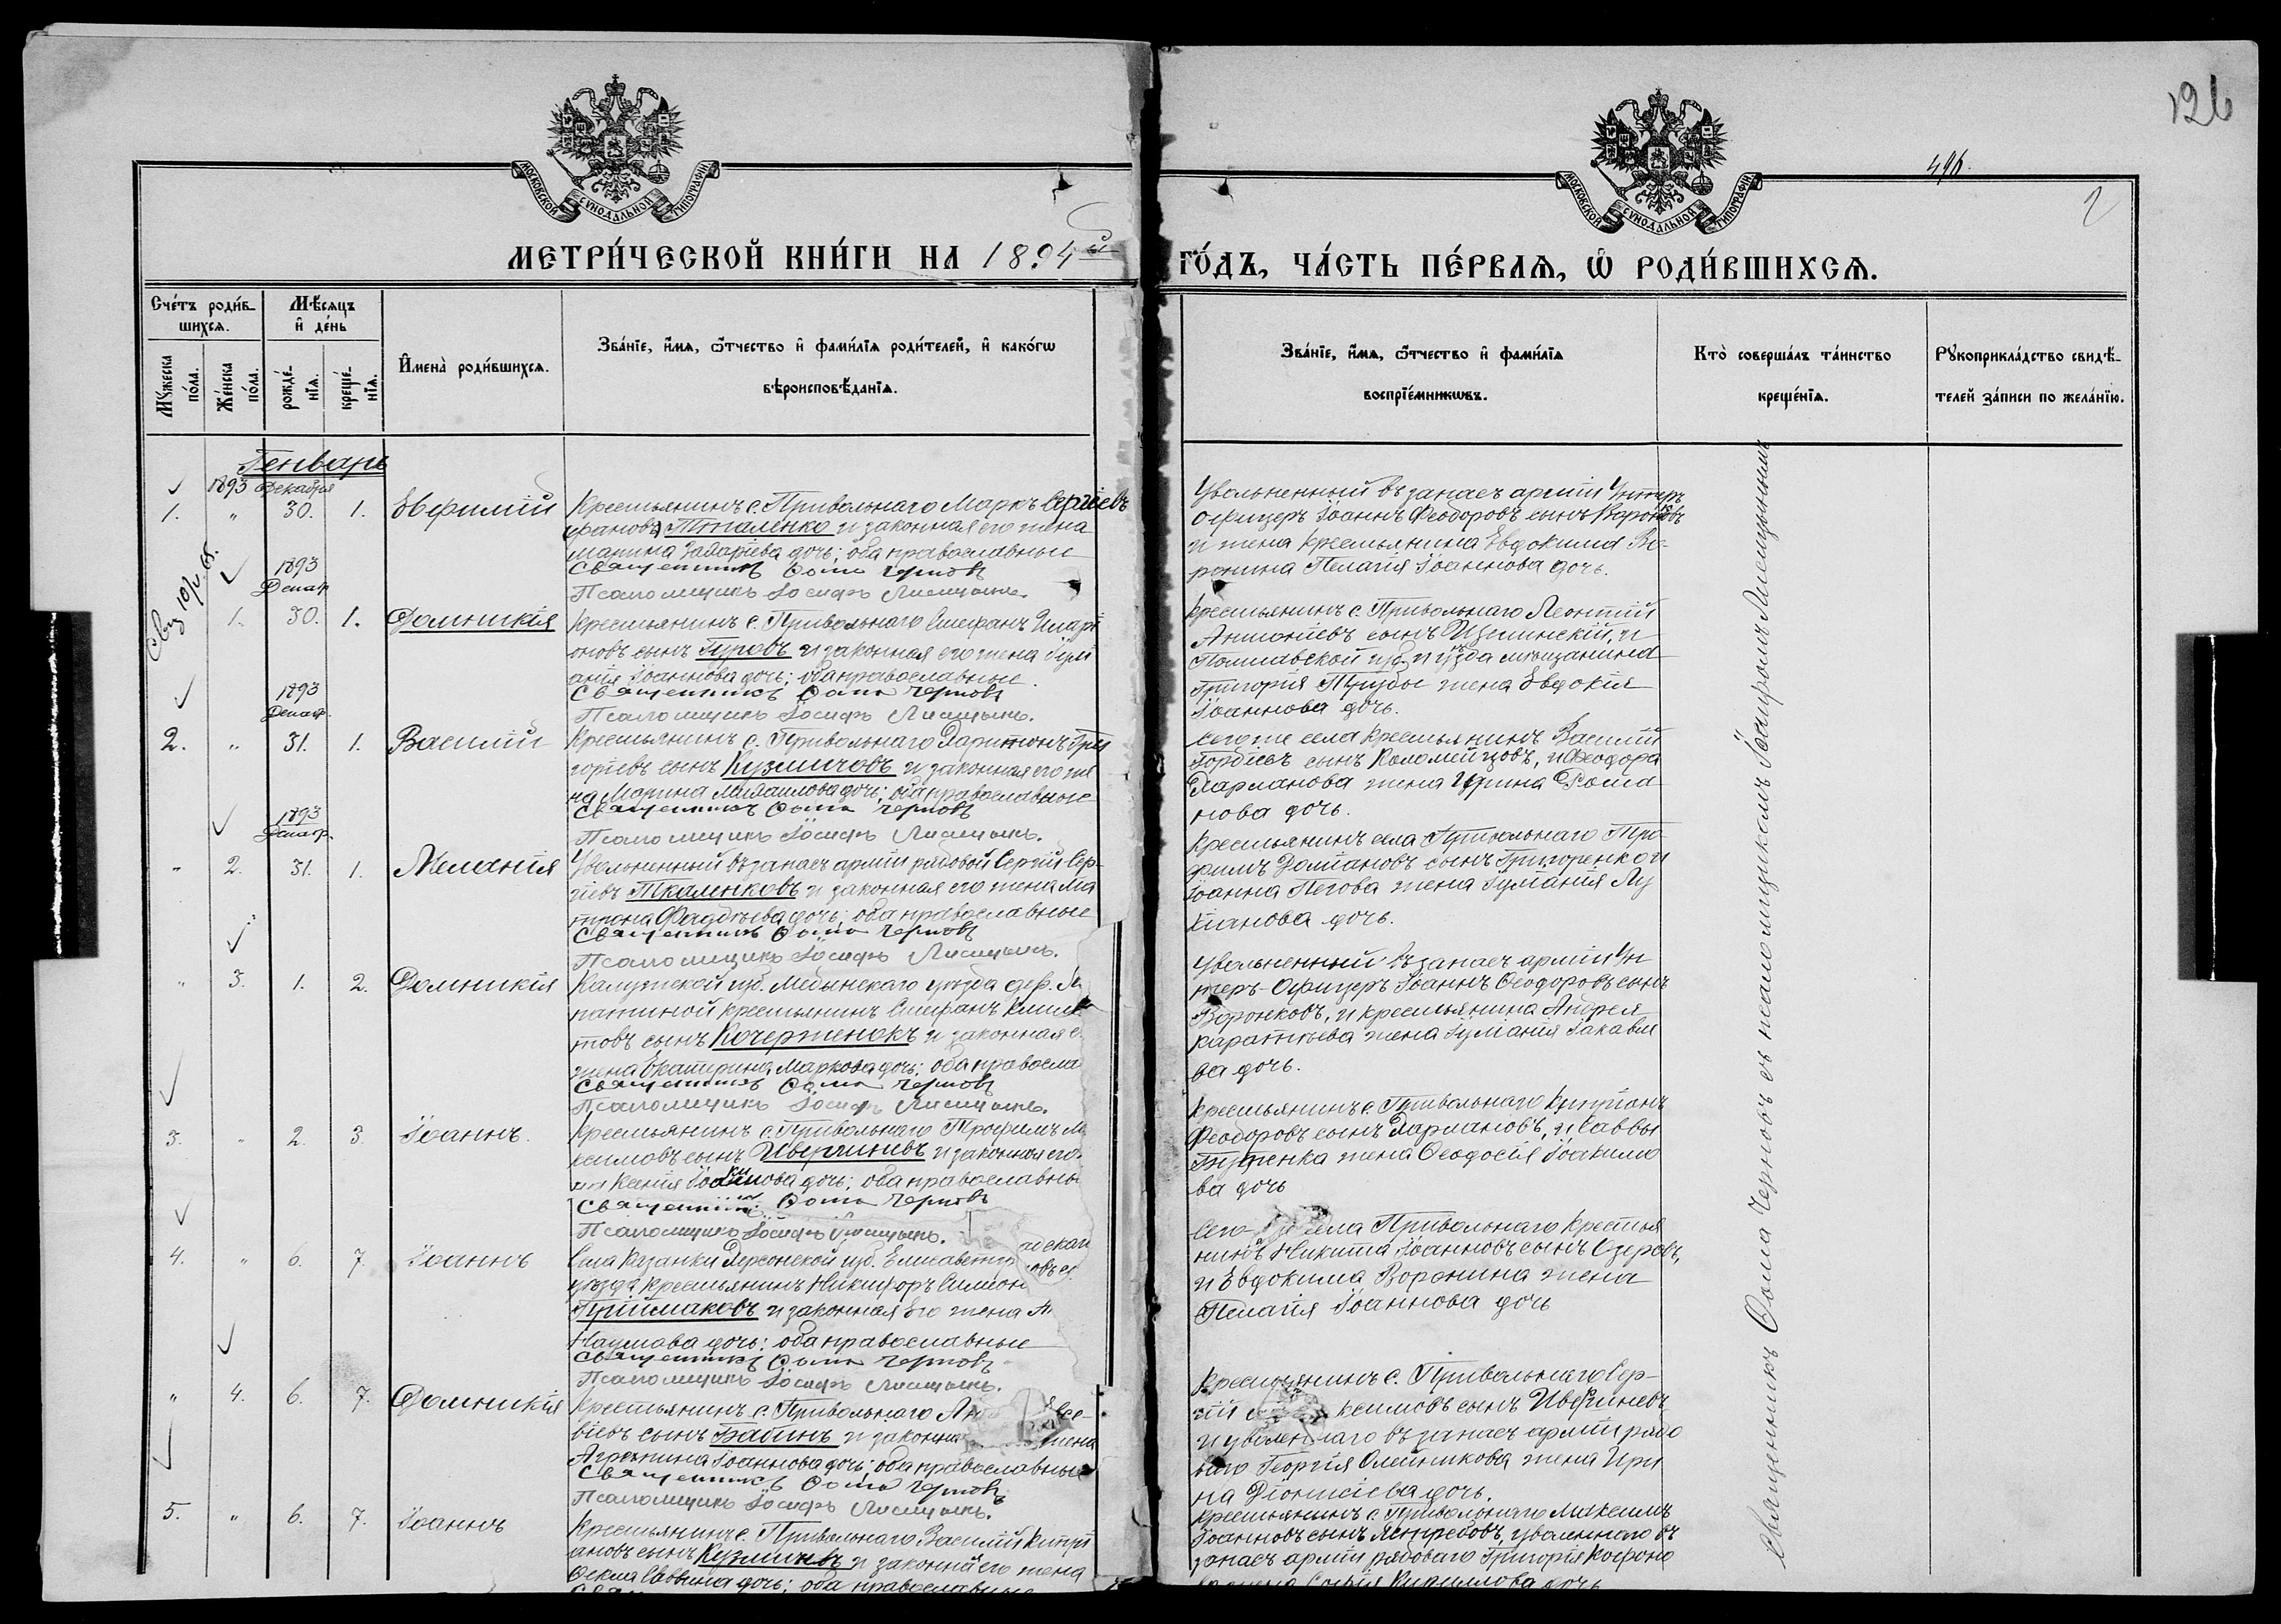 126
496.
2
МОСКОВСКОЙ СѴНОДАЛЬНОЙ ТИПОГРАФІИ
МОСКОВСКОЙ СѴНОДАЛЬНОЙ ТИПОГРАФІИ
МЕТРИ́ЧЕСКОЙ КНИ́ГИ НА 1894й
ГО́ДЪ, ЧА́СТЬ ПЕ́РВАѦ, Ѡ҆ РОДИ́ВШИХСѦ.
Сче́тъ роди́в-
шихсѧ.
Мꙋ́жеска по́ла.
Же́нска по́ла.
Мѣ́сѧцъ
и҆ де́нь
рожде́-нїѧ.
креще́-нїѧ.
И҆мена̀ роди́вшихсѧ.
Зва́нїе, и҆́мѧ, ѻ҆́тчество и҆ фами́лїѧ роди́телей, и҆ како́гѡ
вѣроисповѣ́данїѧ.
Зва́нїе, и҆́мѧ, ѻ҆́тчество и҆ фами́лїѧ
воспрїе́мникѡвъ.
Кто̀ соверша́лъ та́инство
креще́нїѧ.
Рꙋкоприкла́дство свидѣ́-
телей за́писи по жела́нїю.
Генварь
1893 Декабря
1. " 30. 1. Евфимій
Крестьянинъ с. Привольнаго Маркъ Сергіевъ
Ткаленко и законная его жена
Марина Захаріева дочь; оба православные
Священникъ Ѳома Черновъ
Псаломщикъ Іосифъ Лисицынъ.
Уволенный въ запасъ арміи Унтеръ
офицеръ Іоаннъ Феодоровъ сынъ Воронковъ
и жена крестьянина Евдокима Во-
ронина Пелагія Іоаннова дочь.
1893
Декабр
1. 30. 1. Домникія
Крестьянинъ с. Привольнаго Стефанъ Илари
оновъ сынъ Гуровъ и законная его жена Іулі
анія Іоаннова дочь; оба православные.
Священникъ Ѳома Черновъ
Псаломщикъ Іосифъ Лисицынъ.
Крестьянинъ с. Привольнаго Леонтій
Антоніевъ сынъ и
Полтавской губ. и уѣзда мѣщанина
Григорія Трубы жена Евдокія
Іоаннова дочь.
1893
Декабр.
2. " 31. 1. Василій
Крестьянинъ с. Привольнаго Харитонъ Гри
горіевъ сынъ Кузмичовъ и законная его же
на Марина Михаилова дочь; оба православные
Священникъ Ѳома Черновъ
Псаломщикъ Іосифъ Лисицынъ.
Сего же села крестьянинъ Василій
Гордіевъ сынъ Коломейцовъ, и Феодора
Харланова жена Ирина Рома
нова дочь.
1893
Декабр.
" 2. 31. 1. Меланія
Уволенный въ запасъ арміи рядовой Сергій Сер-
гіевъ Ткаленковъ и законная его жена Ма
трона Фаддѣева дочь; оба православные
Священникъ Ѳома Черновъ
Псаломщикъ Іосифъ Лисицынъ.
Крестьянинъ села Привольнаго Тро-
фимъ Доміановъ сынъ Григоренко и
Іоанна Пегова жена Іуліанія Лу
кіанова дочь.
" 3. 1. 2. Домникія
Калужской губ. Медынскаго уѣзда дер.
крестьянинъ Стефанъ
товъ сынъ Кочерженокъ и законная е
жена Екатерина Маркова дочь; оба правосла
Священникъ Ѳома Черновъ
Псаломщикъ Іосифъ Лисицынъ.
Уволенный въ запасъ арміи Ун
теръ-Офицеръ Іоаннъ Ѳеодоровъ сынъ
Воронковъ, и крестьянина Андрея
жена Іуліанія Іаковле
ва дочь.
3. " 2. 3. Іоаннъ.
Крестьянинъ с. Привольнаго Трофимъ Ма
ксимовъ сынъ Иверчиневъ и законная его
на Ксенія Іоакимова дочь; оба православны
Священникъ Ѳома Черновъ
Псаломщикъ Іосифъ Лисицынъ.
Крестьянинъ с. Привольнаго Кипріанъ
Феодоровъ сынъ Харлановъ, и Саввы
жена Ѳеодосія Іоакимо
ва дочь
4. " 6. 7. Іоаннъ
Села Казанки Херсонской губ. Елисаветгр адскаго
уѣзда крестьянинъ Никифоръ Симеон овъ с
Пріймаковъ и законная его жена
Наумова дочь; оба православные
Священникъ Ѳома Черновъ
Псаломщикъ Іосифъ Лисицынъ.
Сего села Привольнаго крестья
нинъ Никита Іоанновъ сынъ Озеровъ,
и Евдокима Воронина жена
Пелагія Іоаннова дочь
" 4. 6. 7. Домникія
Крестьянинъ с. Привольнаго
віевъ сынъ Бабинъ и законна жена
Агрепина Іоаннова дочь; оба православные
Священникъ Ѳома Черновъ
Псаломщикъ Іосифъ Лисицынъ.
Крестьянинъ с. Привольнаго Сер-
гій ксимовъ сынъ
и уволеннаго въ запасъ арміи рядо
ваго Георгія Олейникова жена Ири
на Діонисіева дочь.
5. " 6. 7. Іоаннъ
Крестьянинъ с. Привольнаго Василій Кипрі
ановъ сынъ Кузмичевъ и законна его жена
Ѳекла Саввина дочь; оба православные
Крестьянинъ с. Привольнаго Максимъ
Іоанновъ сынъ Ястребовъ, уволеннаго въ
запасъ арміи рядоваго Григорія
Софія Кириллова дочь
Священникъ Ѳома Черновъ съ псаломщикомъ Іосифомъ Лисицынымъ